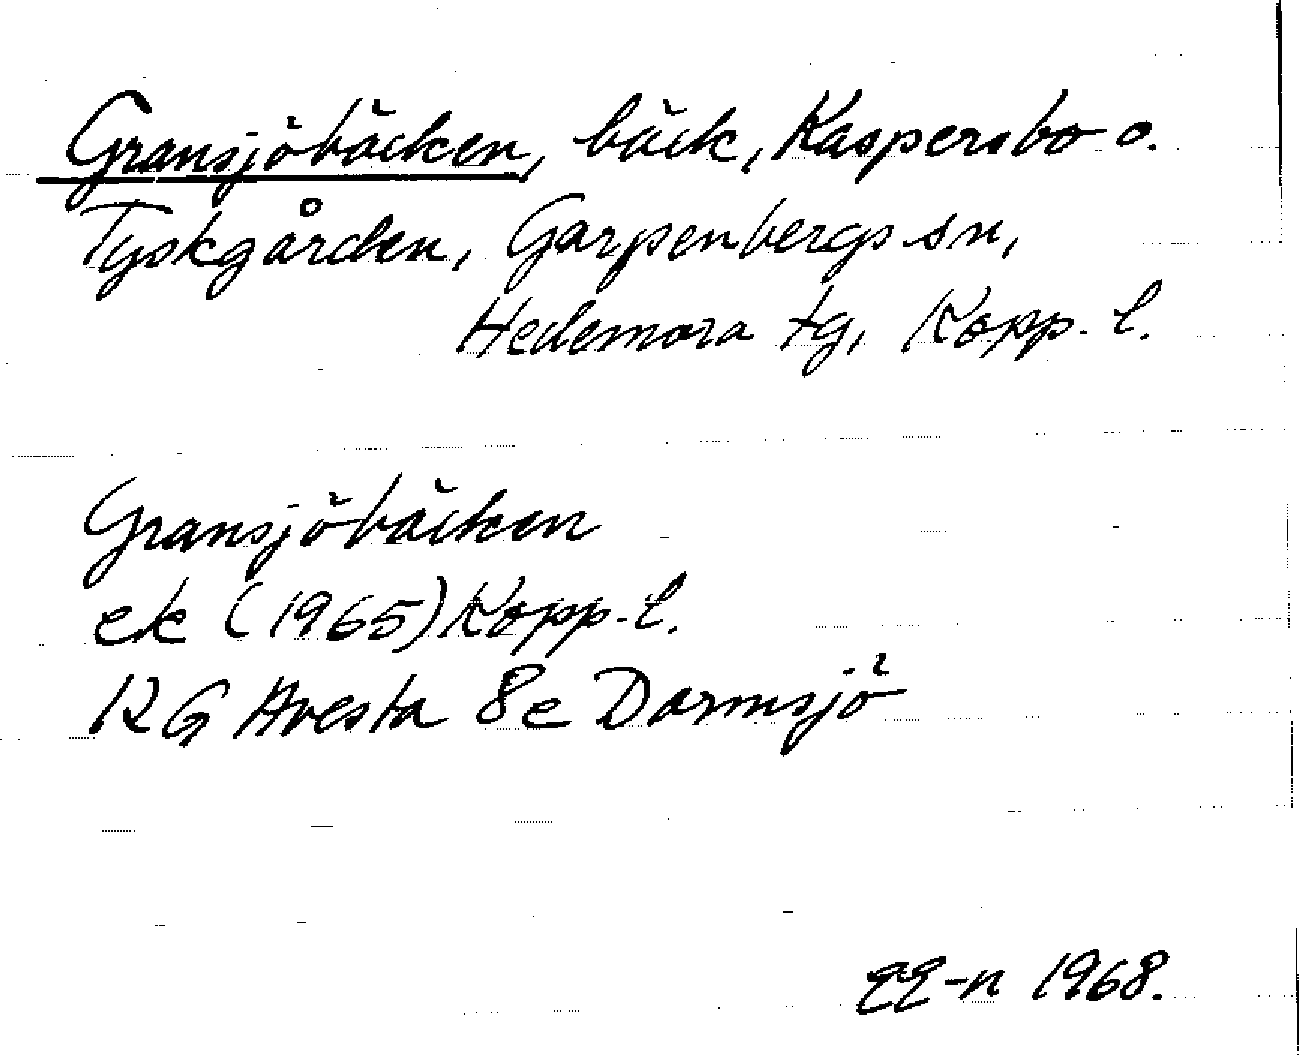 Gransjöbäcken, bäck, Kaspersbo o.
Tyskgården, Garpenbergs sn,
Hedemora tg, Kopp. l.
Gransjöbäcken
ek (1965) Kopp. l.
12G Avesta 8e Dormsjö
1968.